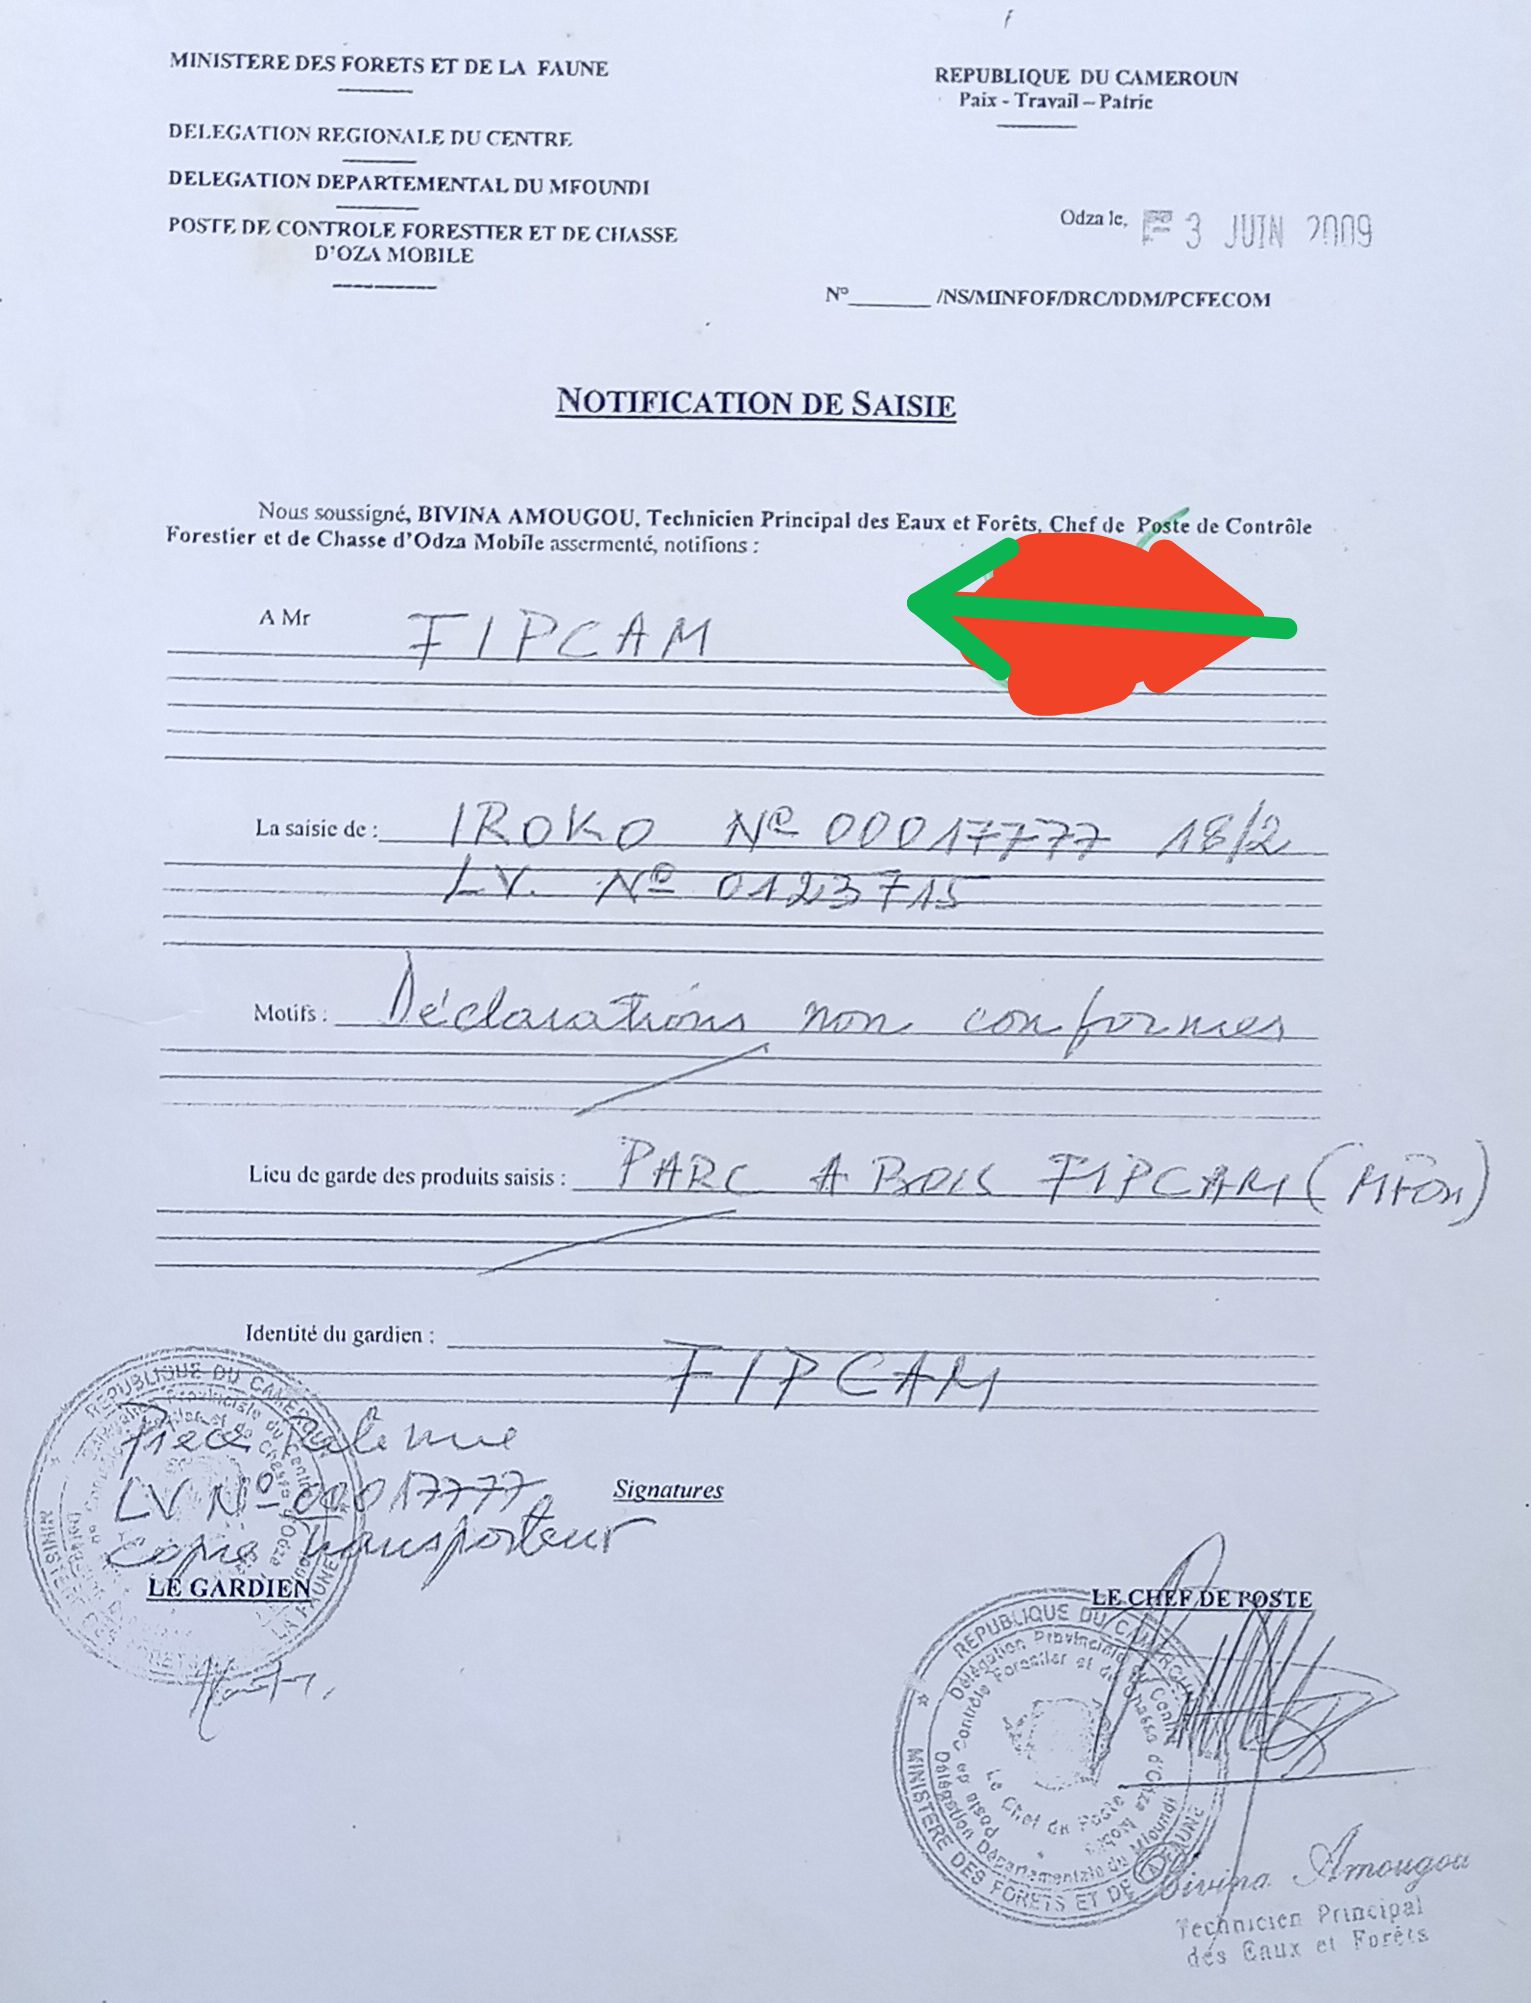 MINISTERE DES FORETS ET DE LA FAUNE
REPUBLIQUE DU CAMEROUN
Paix - Travail – Patrie
DELEGATION REGIONALE DU CENTRE
DELEGATION DEPARTEMENTAL DU MFOUNDI
POSTE DE CONTROLE FORESTIER ET DE CHASSE
D'OZA MOBILE
Odza le, 3 JUIN 2009
N°_______ /NS/MINFOF/DRC/DDM/PCFECOM
NOTIFICATION DE SAISIE
Nous soussigné, BIVINA AMOUGOU, Technicien Principal des Eaux et Forêts, Chef de Poste de Contrôle
Forestier et de Chasse d'Odza Mobile assermenté, notifions :
A Mr FIPCAM
La saisie de : IROKO N° 00017777 18/2
LV. N° 0123715
Motifs : Déclarations non conformes
Lieu de garde des produits saisis : PARC A BOIS FIPCAM (Mfou)
Identité du gardien :
FIPCAM
Pièce Retenue
LV N° 00017777
copie Transporteur
Signatures
LE GARDIEN
LE CHEF DE POSTE
REPUBLIQUE DU CAMEROUN
Délégation Provinciale du Centre
Délégation Départementale du Mfoundi
Poste de Contrôle Forestier et de Chasse d'Odza Mobile
Le Chef de Poste
MINISTERE DES FORETS ET DE LA FAUNE
Bivina Amougou
Technicien Principal
des Eaux et Forêts